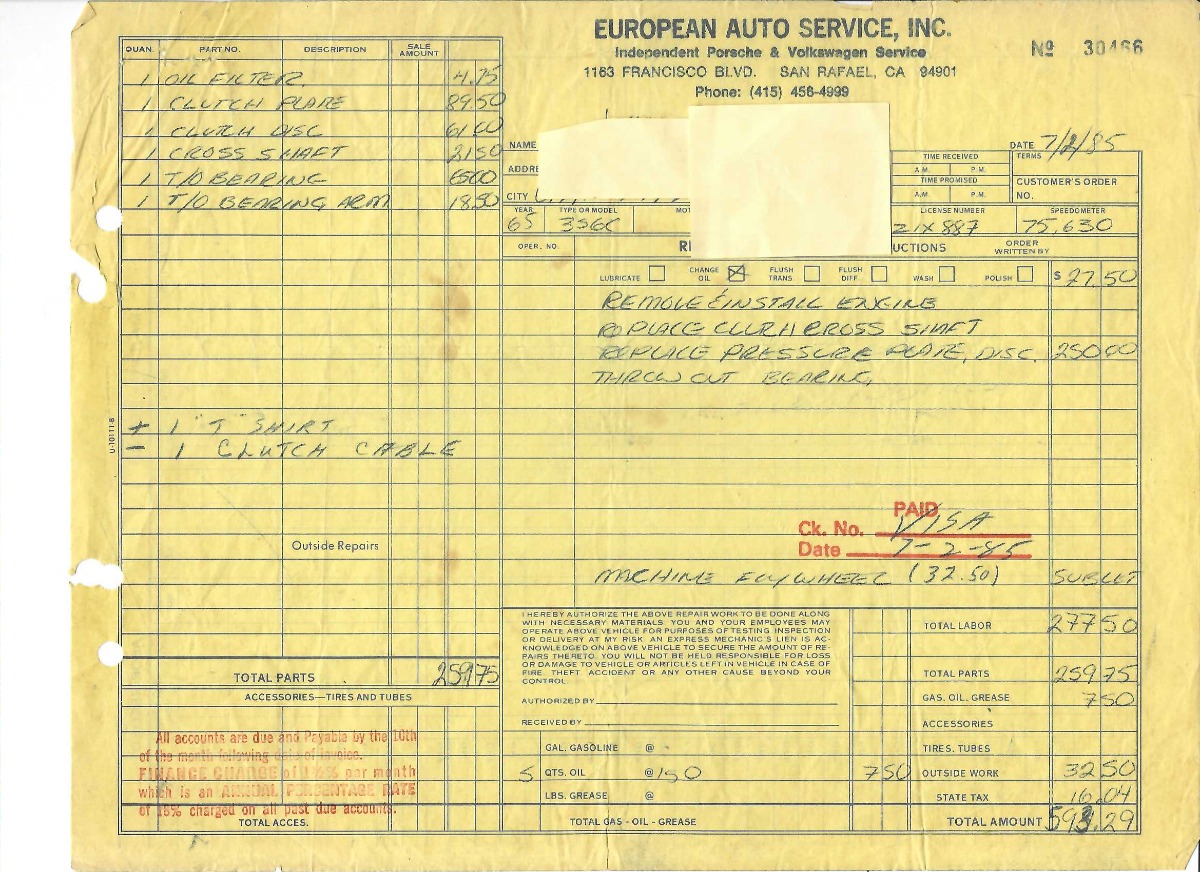 EUROPEAN AUTO SERVICE, INC.
Independent Porsche & Volkswagen Service
1163 FRANCISCO BLVD. SAN RAFAEL, CA 94901
Phone: (415) 456-4999
Nº 30466
QUAN. PART NO. DESCRIPTION SALE AMOUNT
1 OIL FILTER 4.25
1 CLUTCH PLATE 89.50
1 CLUTCH DISC 61.00
1 CROSS SHAFT 21 50
1 T/O BEARING 65 00
1 T/O BEARING ARM 18.50
+ 1 "T" SHIRT
- 1 CLUTCH CABLE
Outside Repairs
TOTAL PARTS 259 75
ACCESSORIES—TIRES AND TUBES
All accounts are due and Payable by the 10th
of the month following date of invoice.
FINANCE CHARGE of 1½% per month
which is an ANNUAL PERCENTAGE RATE
of 18% charged on all past due accounts.
TOTAL ACCES.
U-101118
NAME
DATE 7/2/85
ADDRE
TIME RECEIVED
A.M. P.M.
TERMS
CITY
TIME PROMISED
A.M. P.M.
CUSTOMER'S ORDER NO.
YEAR 65
TYPE OR MODEL 356C
MOT
LICENSE NUMBER
SPEEDOMETER 75,630
OPER. NO.
UCTIONS
ORDER WRITTEN BY
LUBRICATE CHANGE OIL FLUSH TRANS FLUSH DIFF. WASH POLISH $ 27.50
REMOVE & INSTALL ENGINE
REPLACE CLUTCH CROSS SHAFT
REPLACE PRESSURE PLATE, DISC. 250 00
THROW OUT BEARING
PAID
Ck. No. VISA
Date 7-2-85
MACHINE FLYWHEEL (32.50) SUBLET
I HEREBY AUTHORIZE THE ABOVE REPAIR WORK TO BE DONE ALONG
WITH NECESSARY MATERIALS. YOU AND YOUR EMPLOYEES MAY
OPERATE ABOVE VEHICLE FOR PURPOSES OF TESTING INSPECTION
OR DELIVERY AT MY RISK. AN EXPRESS MECHANIC'S LIEN IS AC-
KNOWLEDGED ON ABOVE VEHICLE TO SECURE THE AMOUNT OF RE-
PAIRS THERETO. YOU WILL NOT BE HELD RESPONSIBLE FOR LOSS
OR DAMAGE TO VEHICLE OR ARTICLES LEFT IN VEHICLE IN CASE OF
FIRE, THEFT ACCIDENT OR ANY OTHER CAUSE BEYOND YOUR
CONTROL.
AUTHORIZED BY
RECEIVED BY
GAL. GASOLINE @
5 QTS. OIL @ 150 7 50
LBS. GREASE @
TOTAL GAS - OIL - GREASE
TOTAL LABOR 277 50
TOTAL PARTS 259 75
GAS. OIL. GREASE 7 50
ACCESSORIES
TIRES. TUBES
OUTSIDE WORK 32 50
STATE TAX 16.04
TOTAL AMOUNT 593.29